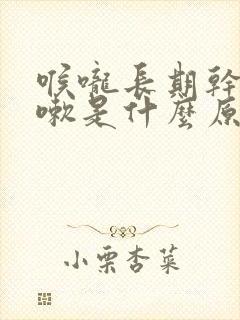 喉嚨長期幹
嗽是什麼原
小栗杏菜